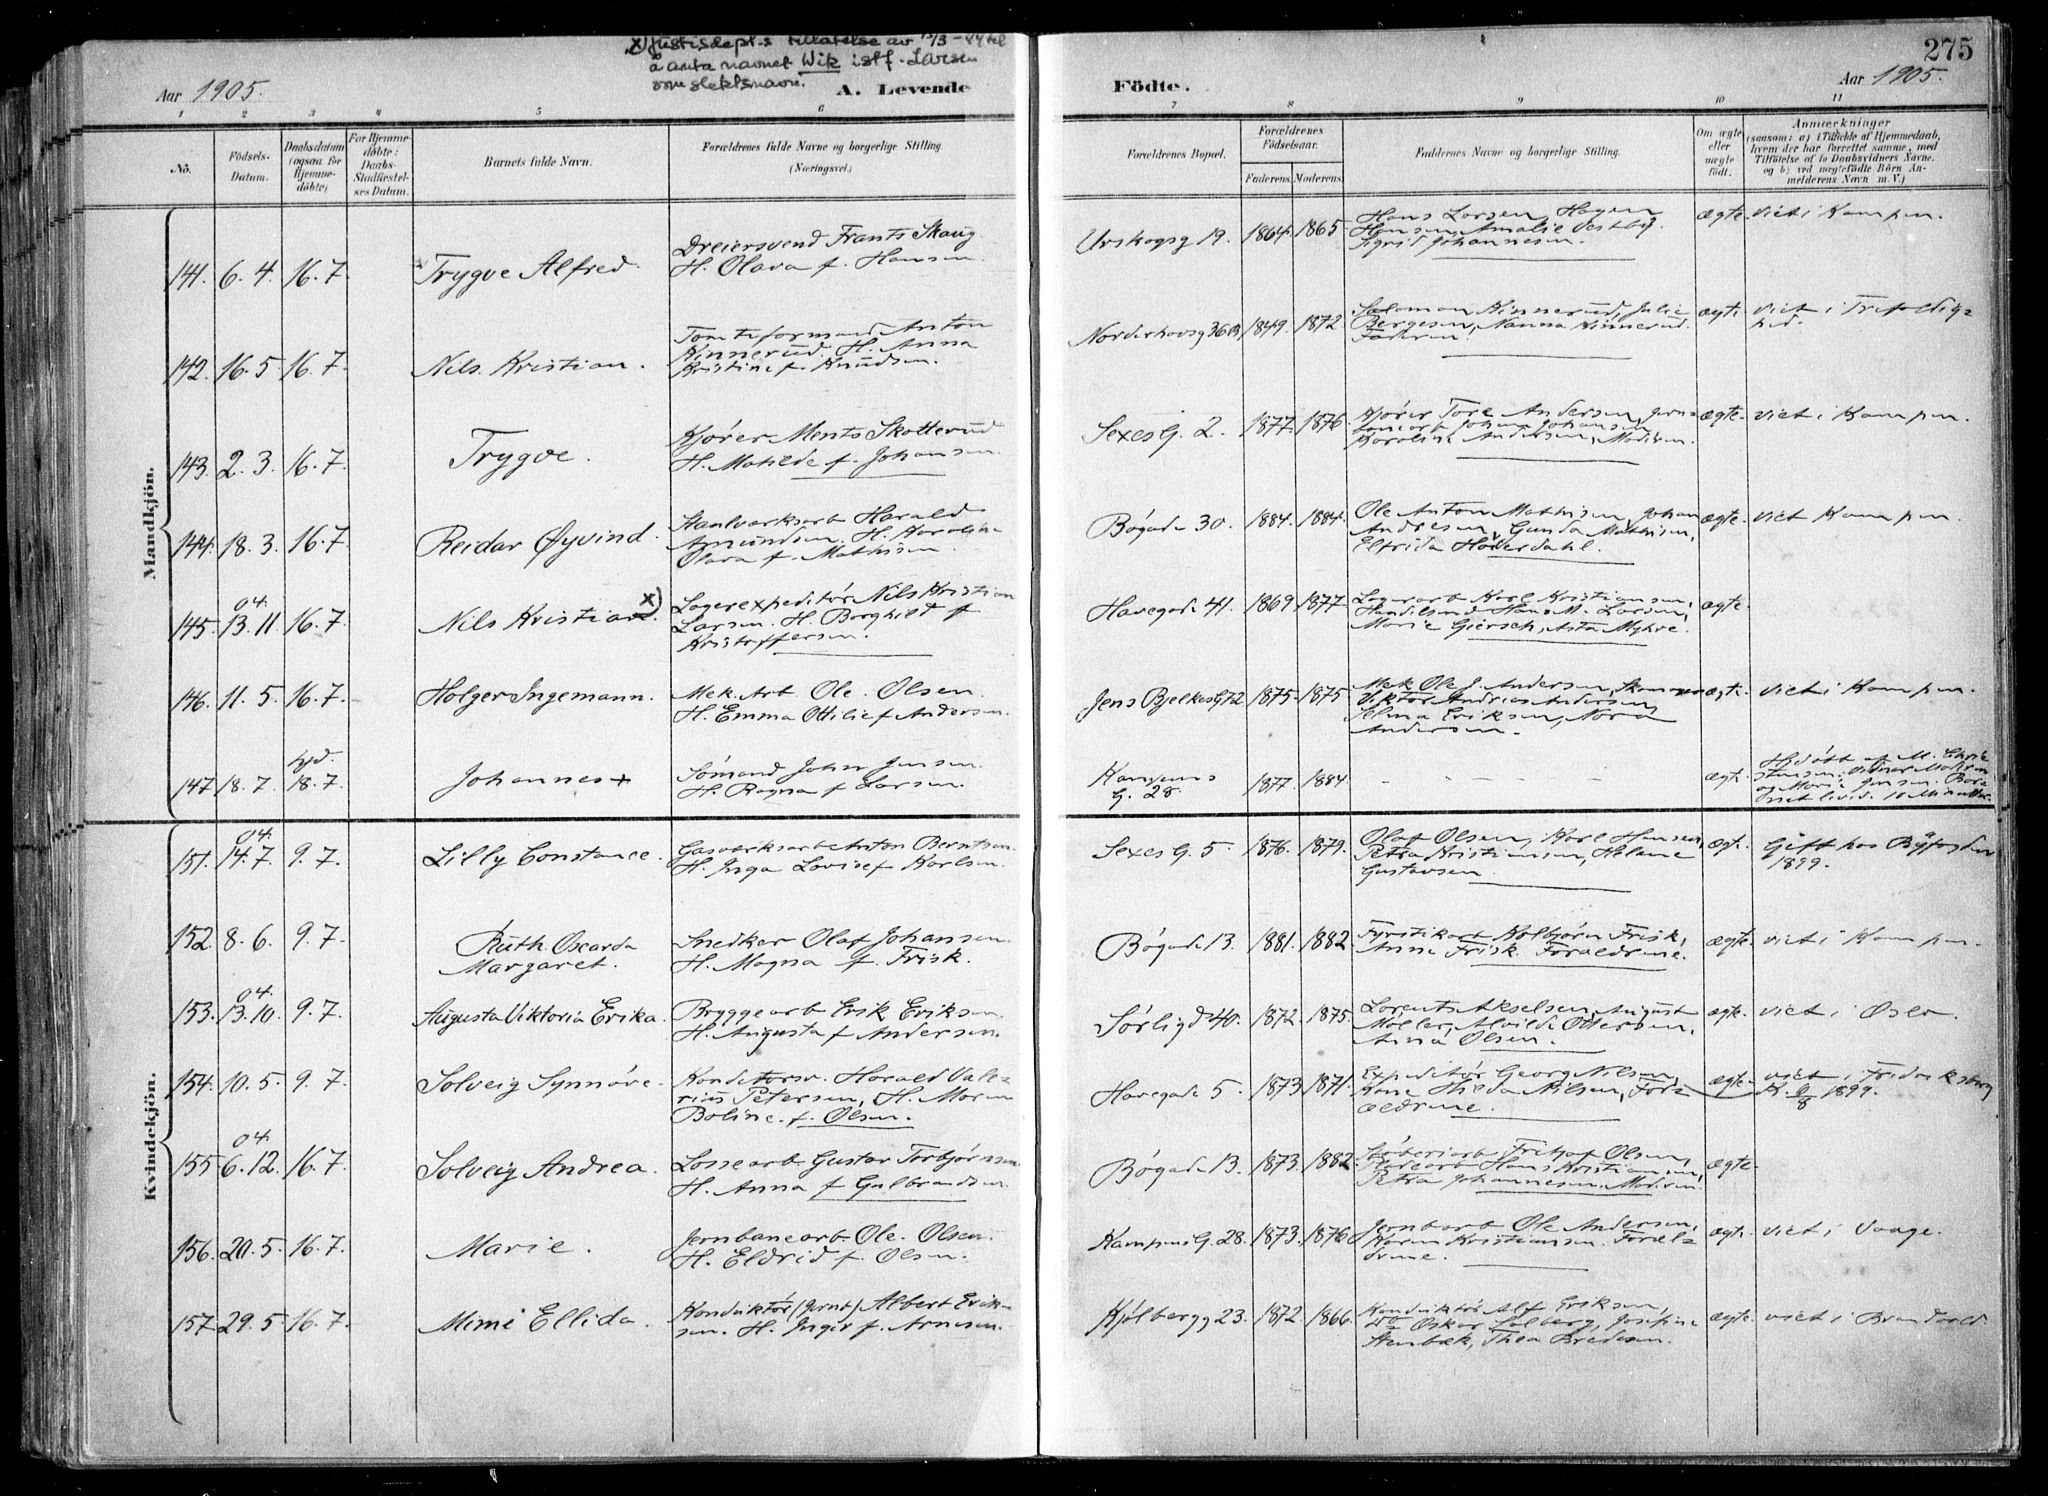 x) Justisdept.s tillatelse av 12/3-44 til
å anta navnet Wik istf. Larsen
som slektsnavn.
275
Aar 1905.
A. Levende
Födte.
Aar 1905.
1 2 3 4 5 6 7 8 9 10 11
No.
Födsels-Datum.
Daabsdatum (ogsaa for Hjemmedöbte)
For Hjemmedöbte: Daabs-Stadfæstelses Datum.
Barnets fulde Navn.
Forældrenes fulde Navne og borgerlige Stilling. (Næringsvei.)
Forældrenes Bopæl.
Forældrenes Födselsaar.
Faderens. Moderens.
Faddernes Navne og borgerlige Stilling.
Om ægte eller uægte födt.
Anmærkninger
(saasom: a) i Tilfælde af Hjemmedaab,
hvem der har forrettet samme, med
Tilföielse af to Daabsvidners Navne.
og b) ved uægtefödte Börn An-
melderens Navn m. V.)
Mandkjön.
141. 6.4 16.7 Trygve Alfred. Dreiersvend Frants Skaug
H. Olava f. Hansen.
Urskogsg 19. 1864. 1865. Hans Larsen, Hagen
Hansen, Amalie Vestby.
Sigrid Johannesen.
ægte. viet i Kampen.
142. 16.5 16.7. Nils Kristian. Tomteformand Anton
Kinnerud. H. Anna
Kristine f. Knudsen.
Norderhovsg 36B. 1849. 1872. Salomon Kinnerud, Julie
Bergesen, Nanna Kinnerud.
Faderen.
ægte. viet i Trefoldig-
hed.
143. 2.3. 16.7 Trygve. Kjörer Ments Skotterud
H. Matilde f. Johansen.
Sexes G. 2. 1877. 1876. Kjörer Tore Andersen,
Johan Johansen
Karoline Andersen, Moderen.
ægte. viet i Kampen.
144. 18.3. 16.7 Reidar Øyvind. Staalverksarb Harald
Amundsen. H. Karoline
Olava f. Mathisen.
Bögade 30. 1884. 1884. Ole Anton Mathisen, Johan
Andresen, Gunda Mathisen,
Elfrida
ægte. viet Kampen.
145. 04. 13.11 16.7. Nils Kristian. x) Lagerexpeditör Nils Kristian
Larsen. H. Borghild f
Kristoffersen.
Havegade 41. 1869 1877. Lagerarb Karl Kristiansen,
Handelsmd Hans M. Larsen,
Marie Giersch, Asta Myhre.
ægte.
146. 11.5. 16.7 Holger Ingemann. Mek Arb Ole Olsen.
H. Emma Ottilie f Andersen.
Jens Bjelkes G 72 1875. 1875 Mek Ole J. Andersen,
Viktor Andreas Andersen,
Selma Eriksen, Nora
Andersen.
ægte. viet i Kampen.
147 18.7. hjd. 18.7. Johannes + Sömand Johan Jensen.
H. Ragna f Larsen.
Kampens
G. 28 1877. 1884. - - - - ægte. Hjdöbt af M. Chri-
stensen.
og Marie Jensen. Bar-
net lived 10 Minutter.
Kvindekjön.
151. 04. 14.7. 9.7. Lilly Constance. Gasverksarb Anton Berntsen
H. Inga Lovise f Karlsen.
Sexes G. 5. 1876. 1879. Olaf Olsen, Karl Hansen,
Petra Kristiansen, Helene
Gustavsen.
ægte. Gift hos Byfogden
1899.
152. 8.6. 9.7. Ruth Oscarda
Margaret. Snedker Olaf Johansen.
H. Magna f. Frisk.
Bögade 13. 1881. 1882. Fyrstikarb Kolbjörn Frisk,
Anne Frisk. Forældrene.
ægte. viet i Kampen.
153. 04. 13.10. 9.7. Augusta Viktoria Erika. Bryggearb Erik Eriksen
H. Augusta f Andersen.
Sörligd 40. 1872. 1875. Lorents Akselsen, August
Möller, Alvilde Ottersen,
Anna Olsen.
ægte. viet i Oslo.
154. 10.5. 9.7. Solveig Synnöve. Konditorsv. Harald Vale-
rius Petersen, H. Maren
Boline. f. Olsen.
Havegade 5. 1873 1871. Expeditör Georg Nilsen,
Kone Hilda Nilsen, For-
ældrene.
ægte. viet i Frederiksberg
K. 6/8 1899.
155 04. 6.12. 16.7. Solveig Andrea. Lossearb Gustav Torbjörnsen
H. Anna f Gulbrandsen.
Bögade 13. 1873. 1882. Stöberiarb Fritjof Olsen,
Hans Kristiansen,
Petra Johannesen. Moderen.
ægte.
156. 20.5. 16.7. Marie. Jernbanearb Ole Olsen.
H. Eldrid f. Olsen.
Kampens G. 28. 1873. 1876. Jernbarb Ole Andersen,
Karen Kristiansen. Foræl-
drene.
ægte. viet i Vaage.
157. 29.5. 16.7. Mimi Ellida. Konduktör (Jernb) Albert Erik-
sen. H. Inger f. Arnesen.
Kjölbergg 23. 1872. 1866. Konduktör Alf Eriksen,
do Oskar Solberg, Josefine
Stenbæk, Thea Bredesen.
ægte. viet i